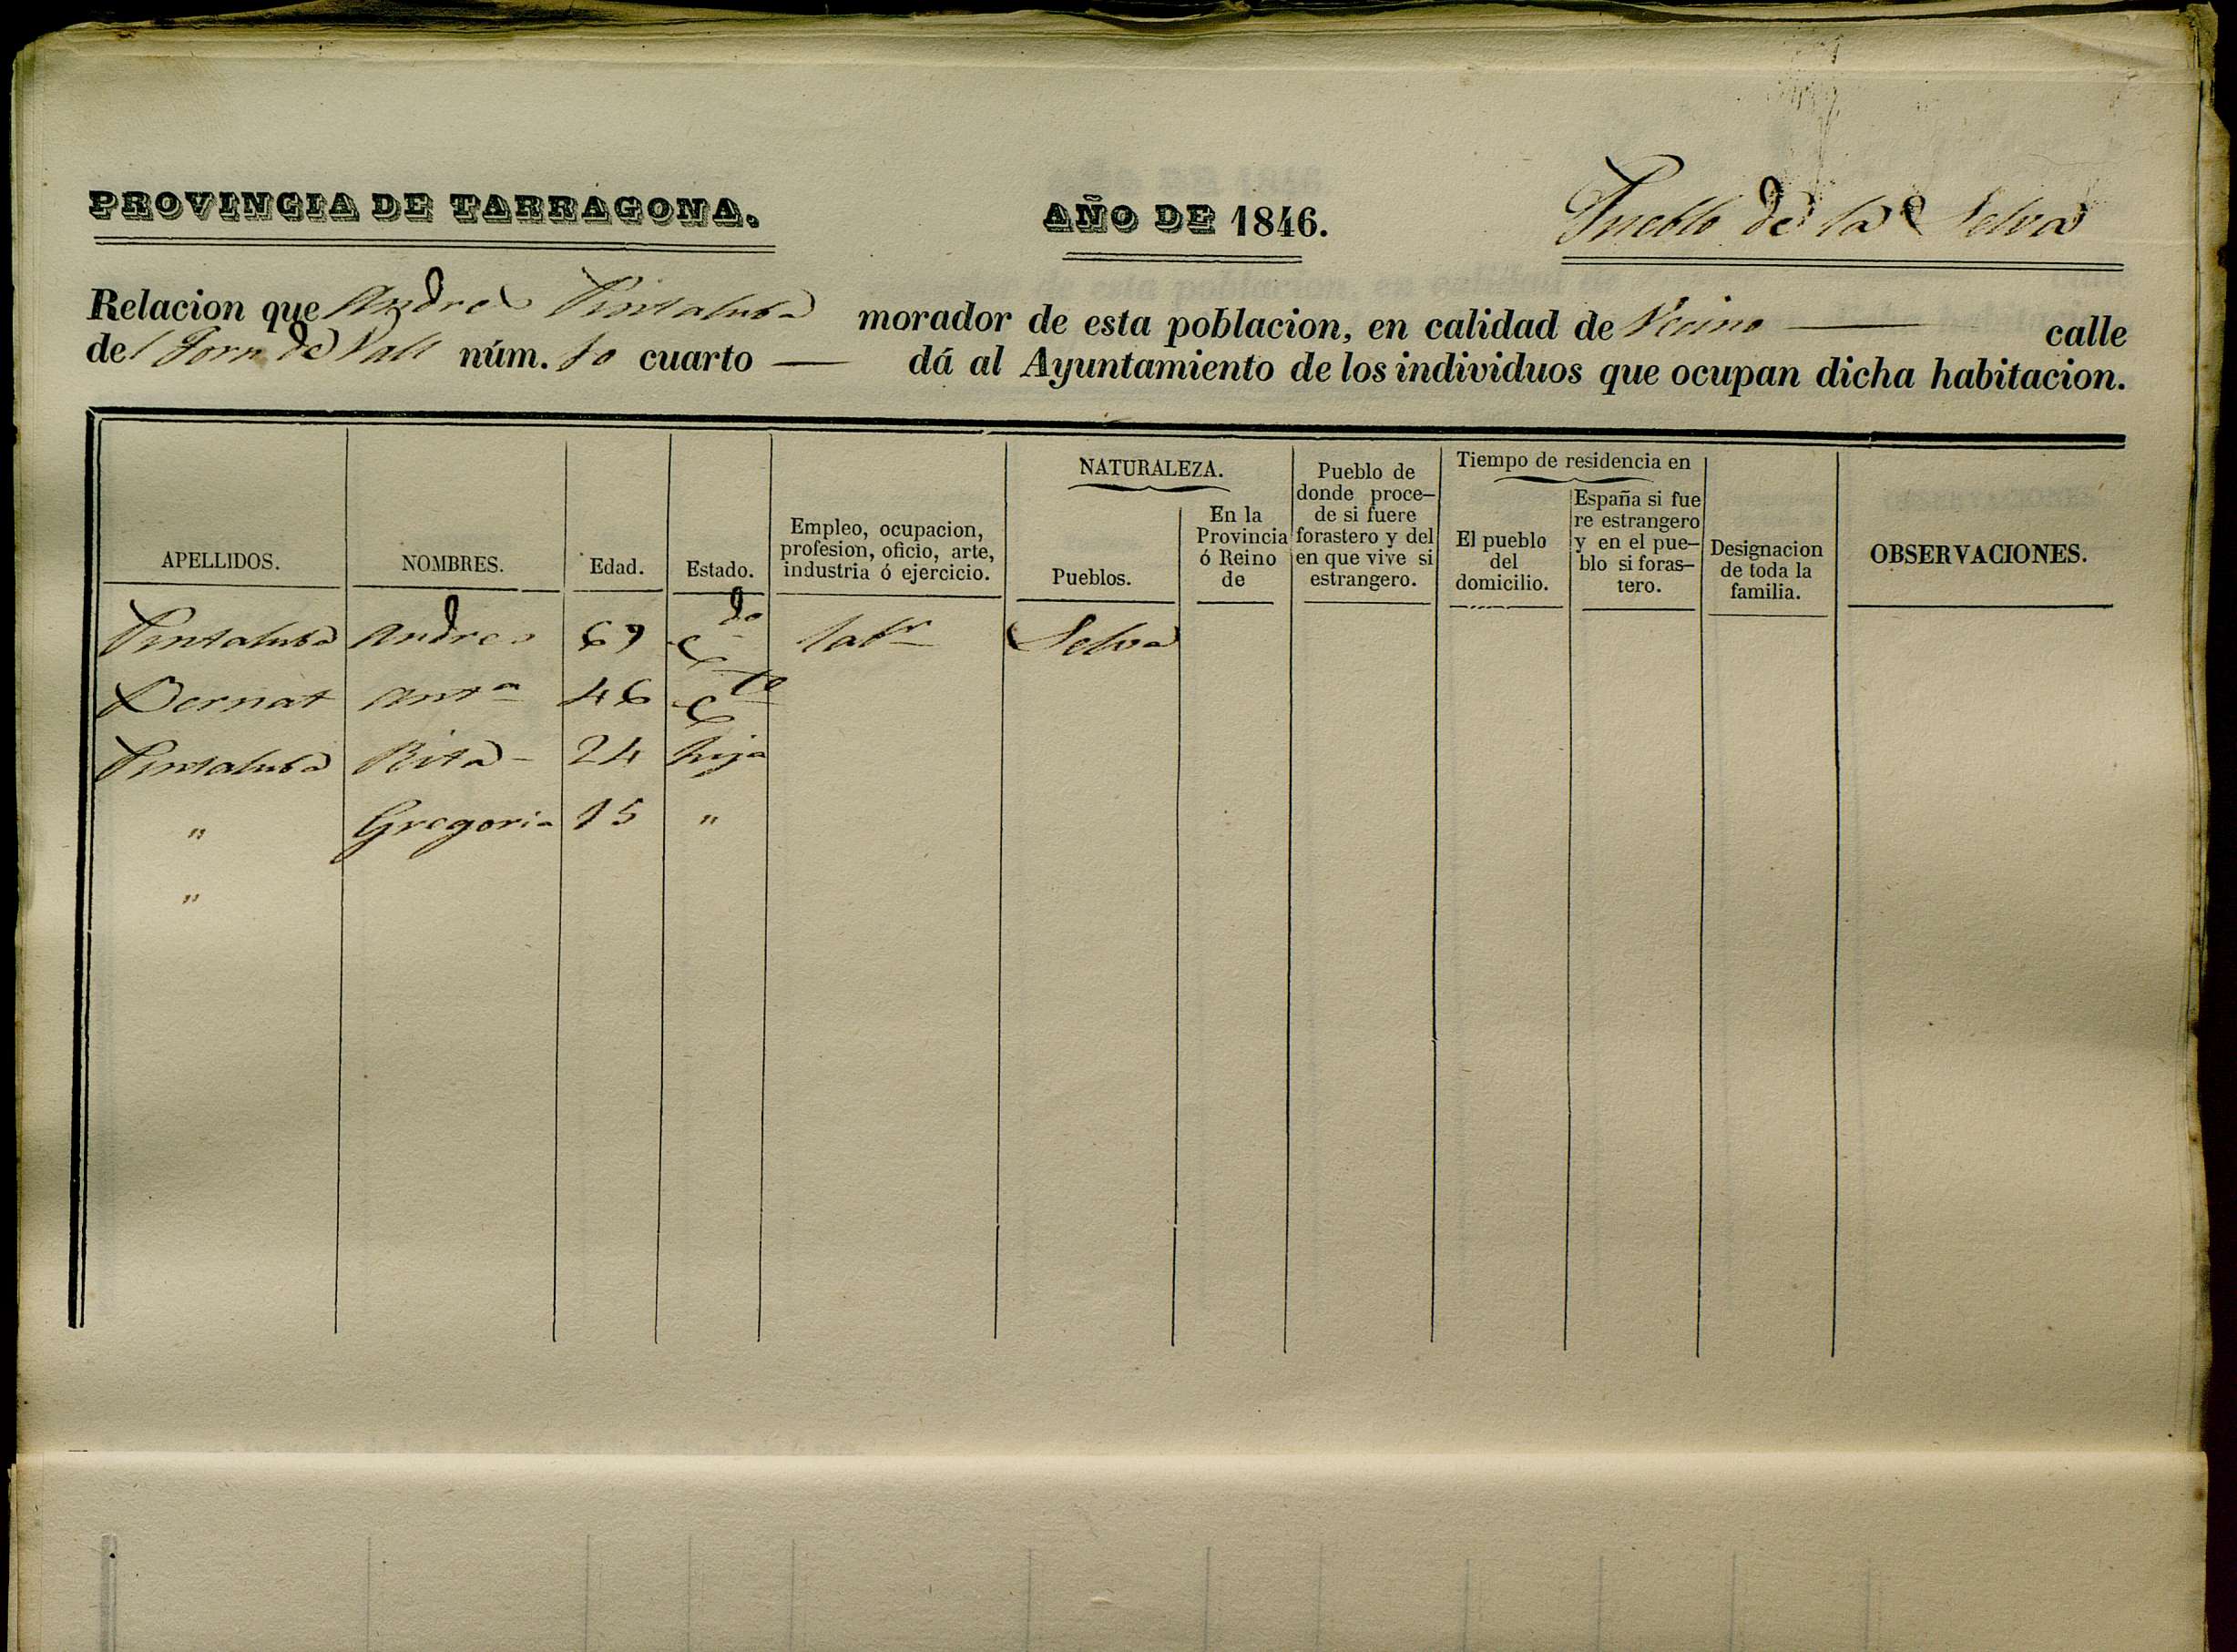 PROVINCIA DE TARRAGONA. AÑO DE 1846. Pueblo de la Selva
Relacion que Andres Pintaluba morador de esta poblacion, en calidad de Vecino — calle
del Forn de Vall núm. 10 cuarto — dá al Ayuntamiento de los individuos que ocupan dicha habitacion.
APELLIDOS. NOMBRES. Edad. Estado. Empleo, ocupacion, profesion, oficio, arte, industria ó ejercicio. NATURALEZA. Pueblos. En la Provincia ó Reino de Pueblo de donde proce- de si fuere forastero y del en que vive si estrangero. Tiempo de residencia en El pueblo del domicilio. España si fue re estrangero y en el pue- blo si foras- tero. Designacion de toda la familia. OBSERVACIONES.
Pintaluba Andres 69 Cdo labr Selva
Bernat Anta 46 Cda
Pintaluba Rita - 24 hija
" Gregoria 15 "
"